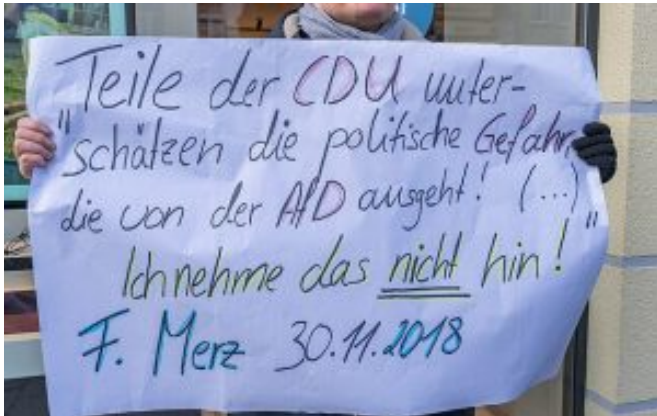 Teile der CDU unter-
"schätzen die politische Gefahr,
die von der AfD ausgeht! (...)
Ich nehme das nicht hin!"
F. Merz 30.11.2018